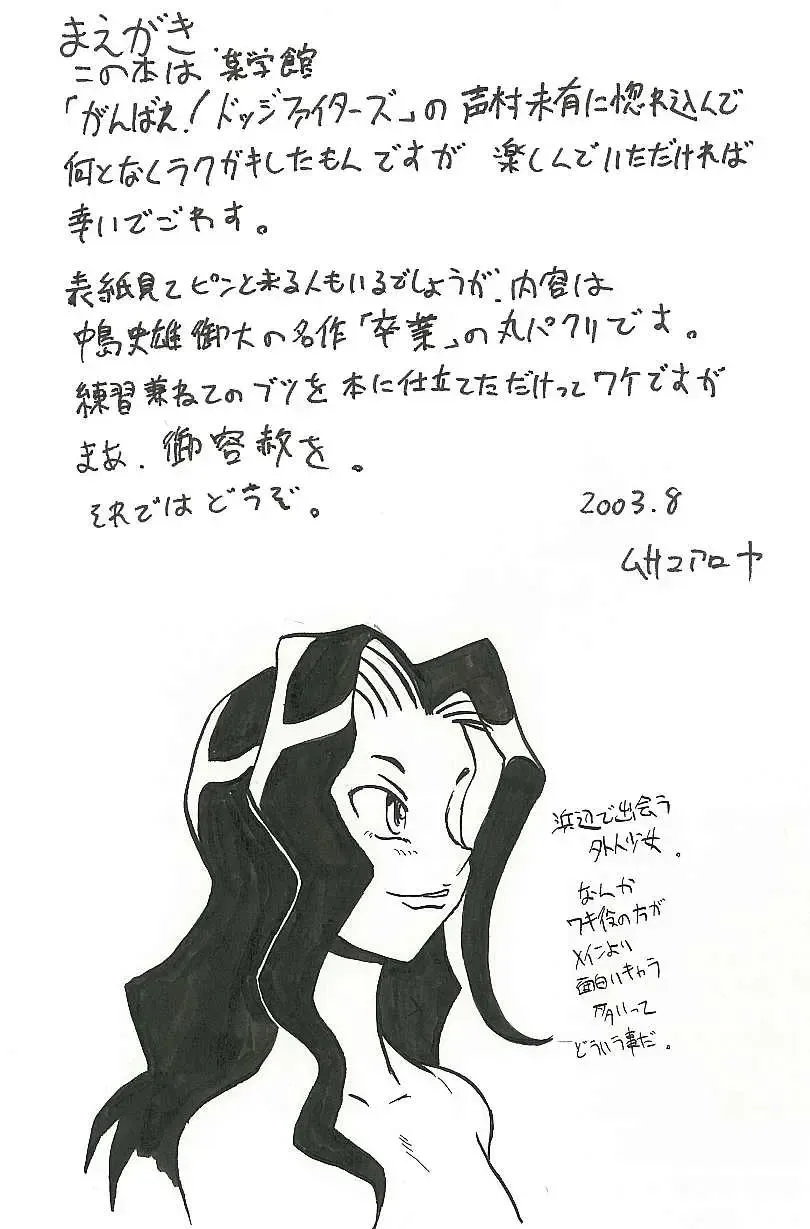 まえがき
この本は 薬学館
「がんばれ!ドッジファイターズ」の 声村未有に惚れ込んで
何となくラクガキしたもんですが 楽しんでいただければ
幸いでごわす。
表紙見てピンと来る人もいるでしょうが、内容は
中島史雄御大の名作「卒業」の丸パクリです。
練習兼ねてのブツを本に仕立てただけってワケですが
まあ、御容赦を。
それではどうぞ。
2003.8
ムサコアロヤ
浜辺で出会う
外人少女。
なんか
ワキ役の方が
メインより
面白いキャラ
多いって
どういう事だ。